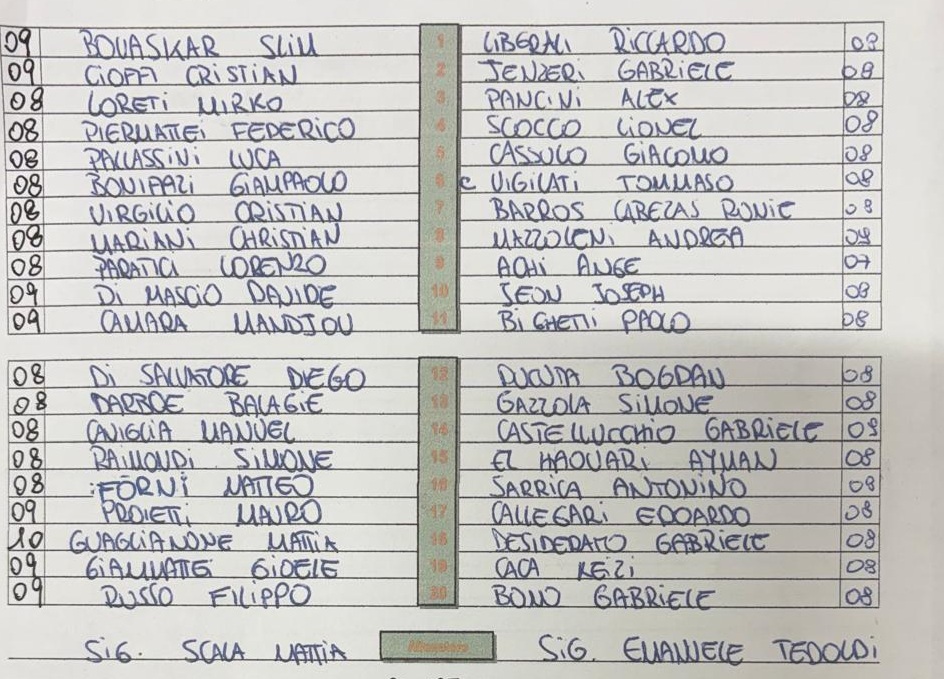 09 BOUASKAR SLIM 1 LIBERALI RICCARDO 09
09 CIOFFI CRISTIAN 2 JENZERI GABRIELE 08
08 LORETI MIRKO 3 PANCINI ALEX 08
08 PIERMATTEI FEDERICO 4 SCOCCO LIONEL 08
08 PALLASSINI LUCA 5 CASSULO GIACOMO 08
08 BONIFAZI GIAMPAOLO 6 C VIGILATI TOMMASO 08
08 VIRGILIO CRISTIAN 7 BARROS CABEZAS RONIE 08
08 MARIANI CHRISTIAN 8 MAZZOLENI ANDREA 09
08 PARATICI LORENZO 9 ACHI ANGE 07
09 Di MASCIO DAVIDE 10 JEON JOSEPH 08
09 CAMARA MANDJOU 11 BiGHETTI PAOLO 08
08 Di SALVATORE DIEGO 12 DUCUTA BOGDAN 08
08 DARBOE BALAGIE 13 GAZZOLA SiMONE 08
08 CAVIGLIA MANUEL 14 CASTELLUCCHIO GABRIELE 09
08 RAIMONDI SIMONE 15 EL HAOUARi AYMAN 08
08 FORNI MATTEO 16 SARRICA ANTONINO 08
09 PROIETTI MAURO 17 CALLEGARI EDOARDO 08
10 GUAGLIANONE MATTIA 18 DESIDERATO GABRIELE 08
09 GIAMMATTEI GIOELE 19 CACA KEIZI 08
09 RUSSO FILIPPO 20 BONO GABRIELE 08
SiG. SCALA MATTIA SiG. EMANUELE TEDOLDI